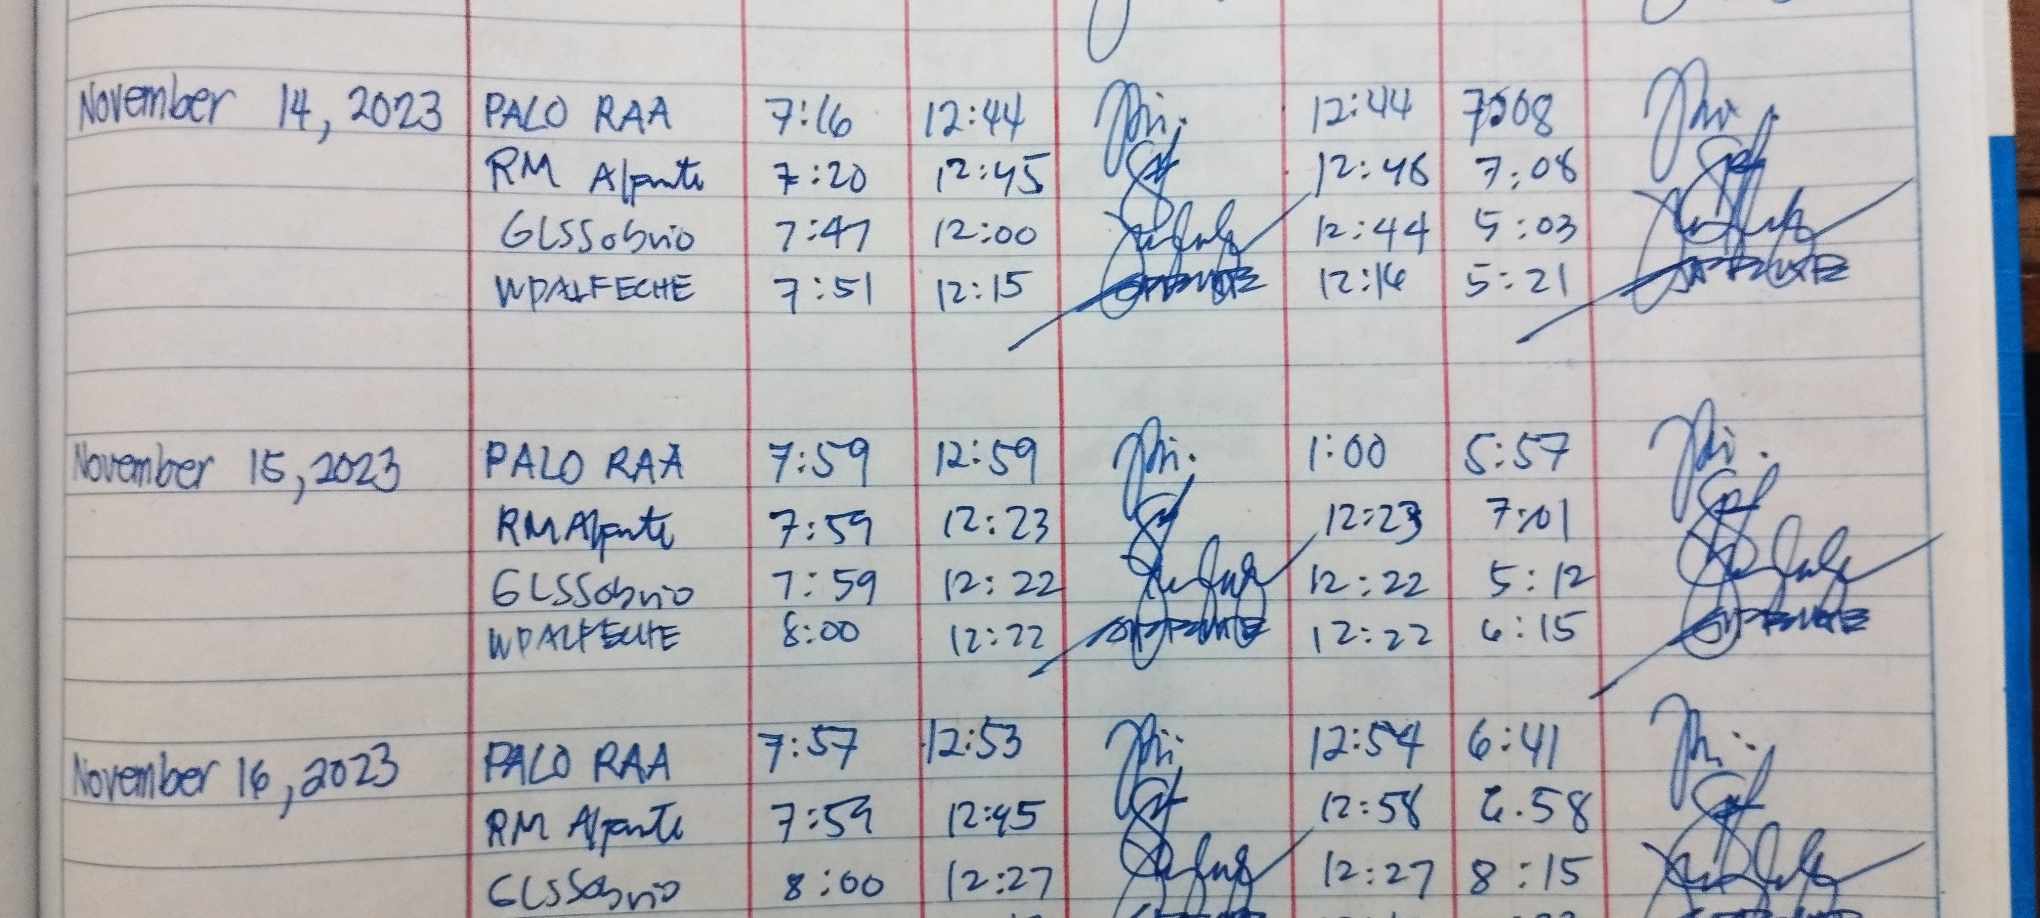 November 14, 2023 PALO RAA 7:16 12:44 12:44 7:08
RM Alpante 7:20 12:45 12:46 7:08
GLSSobrio 7:47 12:00 12:44 5:03
WDALFECHE 7:51 12:15 12:16 5:21
November 15, 2023 PALO RAA 7:59 12:59 1:00 5:57
RM Alpante 7:59 12:23 12:23 7:01
GLSSobrio 7:59 12:22 12:22 5:12
WDALFECHE 8:00 12:22 12:22 6:15
November 16, 2023 PALO RAA 7:57 12:53 12:54 6:41
RM Alpante 7:59 12:45 12:58 6.58
GLSSobrio 8:00 12:27 12:27 8:15